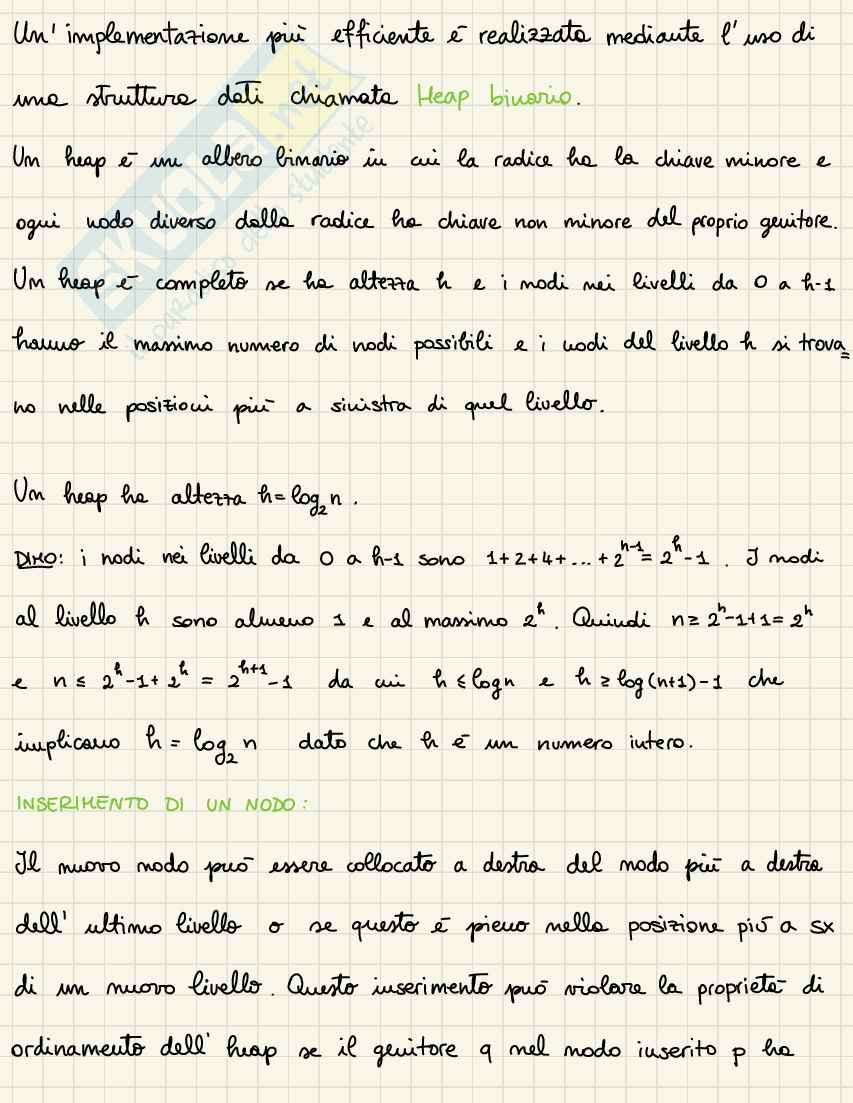 Un' implementazione più efficiente è realizzata mediante l'uso di
una struttura dati chiamata Heap binario.
Un heap è un albero binario in cui la radice ha la chiave minore e
ogni nodo diverso dalla radice ha chiave non minore del proprio genitore.
Un heap è completo se ha altezza h e i nodi nei livelli da 0 a h-1
hanno il massimo numero di nodi possibili e i nodi del livello h si trova=
no nelle posizioni più a sinistra di quel livello.
Un heap ha altezza h = log₂ n.
DIMO: i nodi nei livelli da 0 a h-1 sono 1+2+4+...+2^(h-1) = 2^h - 1. I nodi
al livello h sono almeno 1 e al massimo 2^h. Quindi n ≥ 2^h - 1 + 1 = 2^h
e n ≤ 2^h - 1 + 2^h = 2^(h+1) - 1 da cui h ≤ log n e h ≥ log(n+1) - 1 che
implicano h = log₂ n dato che h è un numero intero.
INSERIMENTO DI UN NODO:
Il nuovo nodo può essere collocato a destra del nodo più a destra
dell' ultimo livello o se questo è pieno nella posizione più a sx
di un nuovo livello. Questo inserimento può violare la proprietà di
ordinamento dell' heap se il genitore q nel nodo inserito p ha
SKUOLA.net
il paradiso dello studente